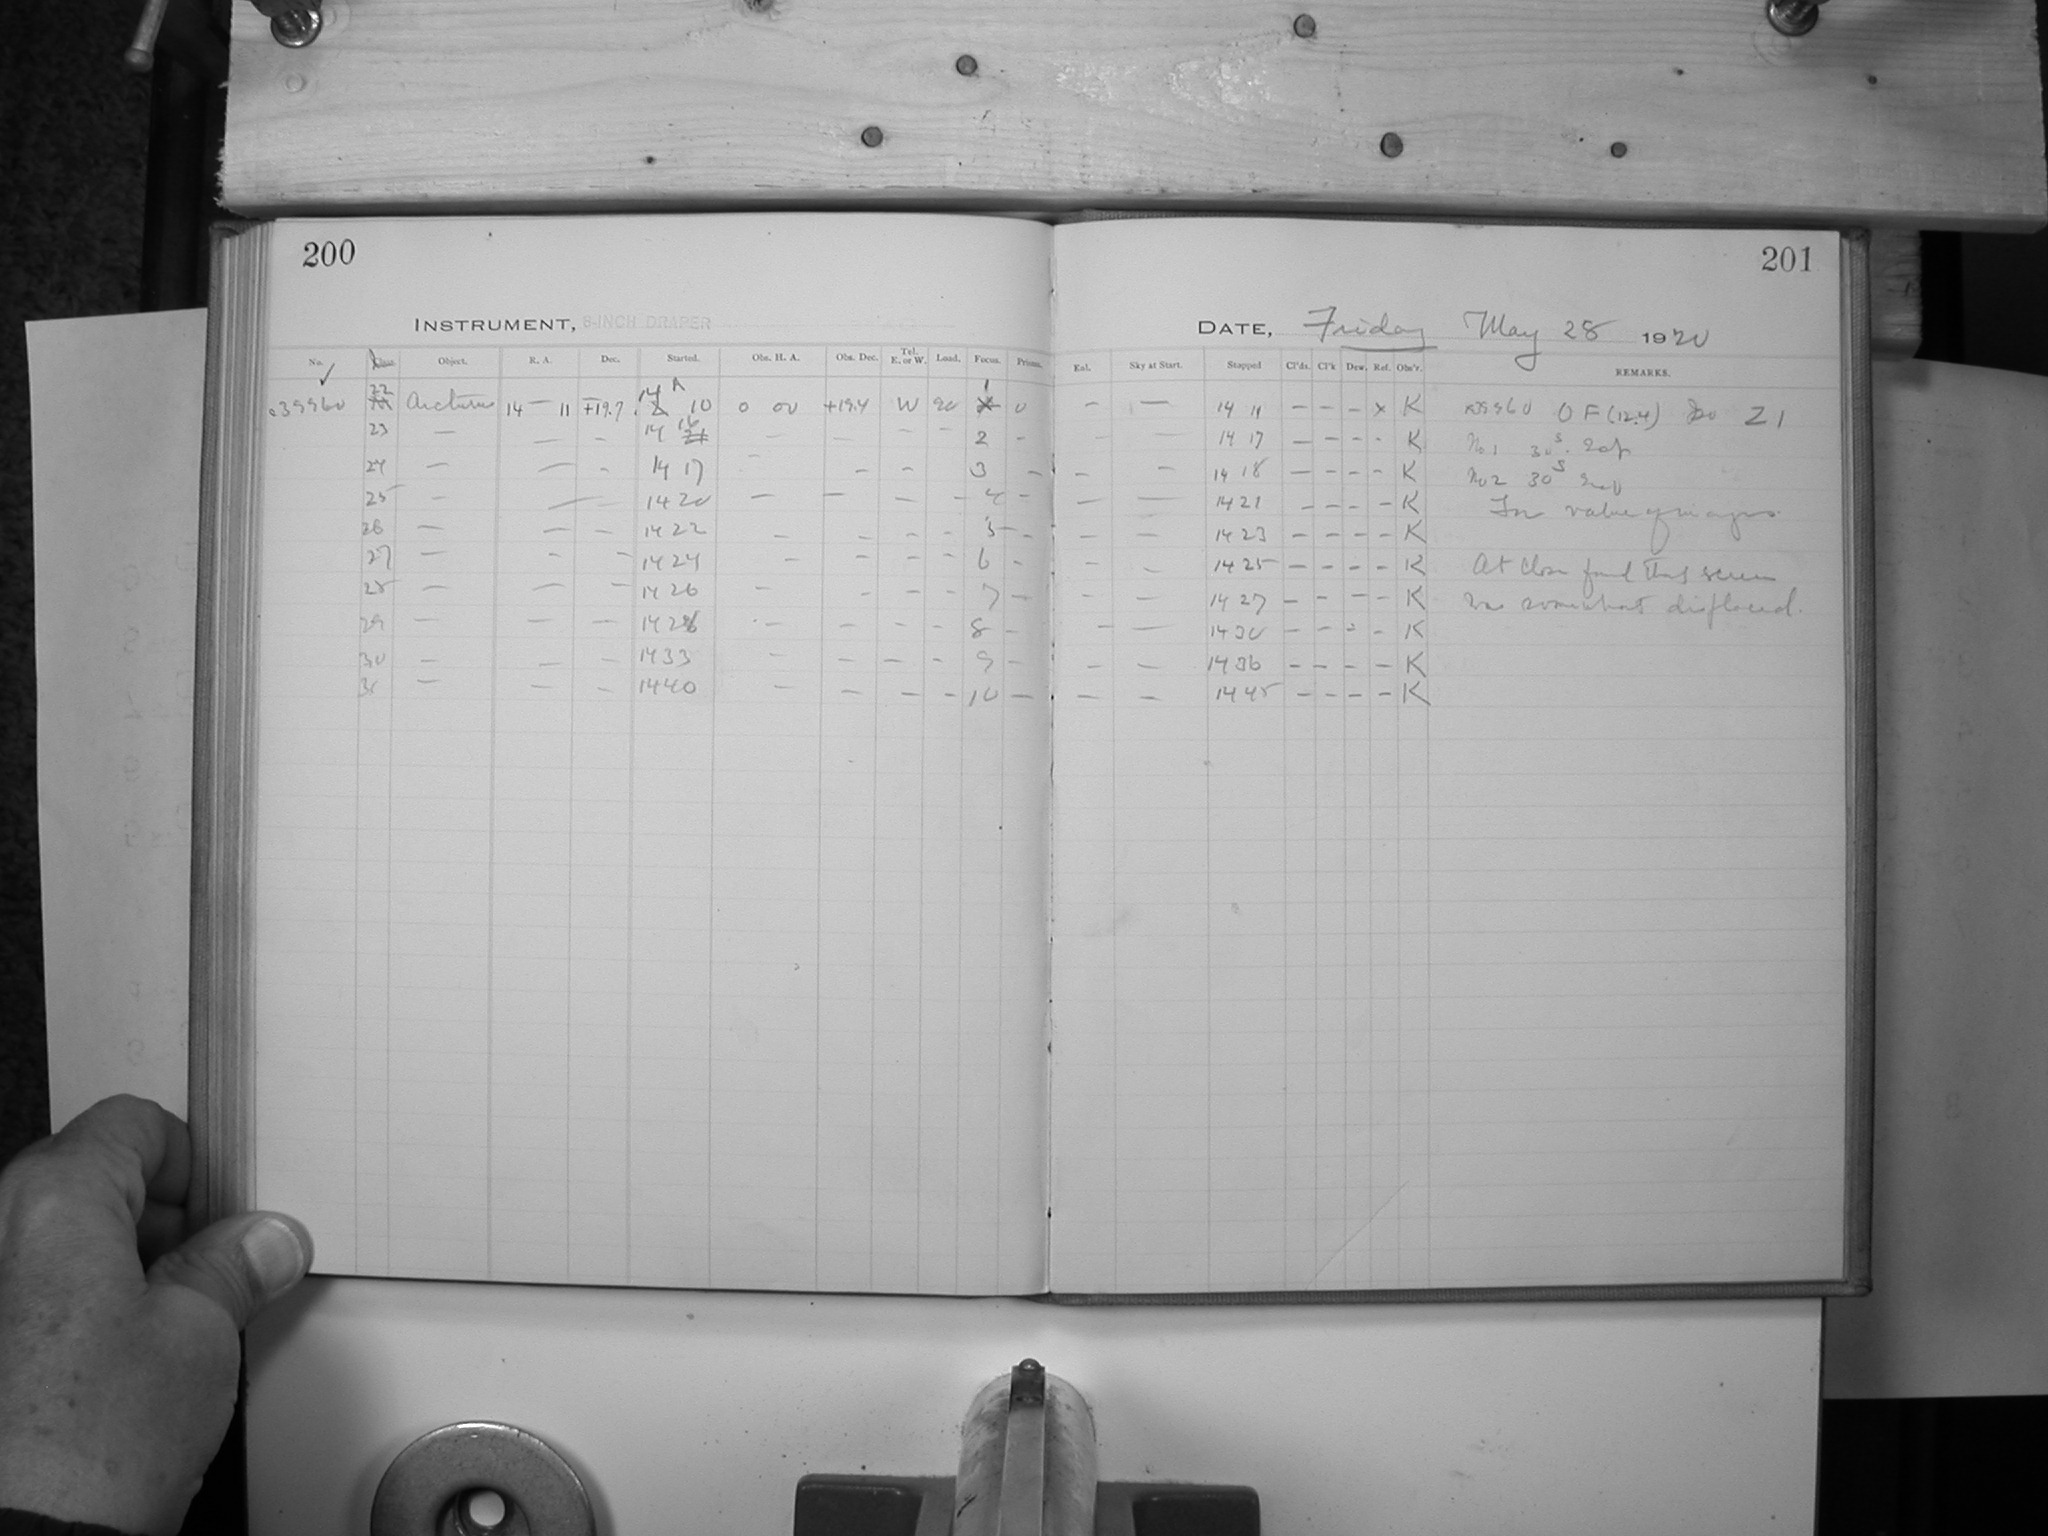 200
201
INSTRUMENT, 8-INCH DRAPER
DATE, Friday May 28 1920
No. Class. Object. R. A. Dec. Started. Obs. H. A. Obs. Dec. Tel. E. or W. Load. Focus. Prism. Eal. Sky at Start. Stopped Cl'ds. Cl'k Dew. Ref. Obs'r. REMARKS.
39960 22 Arcturus 14 – 11 +19.7 14 10 0 00 +19.4 W 90 1 0 – – 14 11 – – – x K 39960 OF (12.4) Z 1
23 – – – 14 16 – – – – 2 – – 14 17 – – – – K No 1 30s
24 – – – 14 17 – – – 3 – – – 14 18 – – – – K No 2 30s
25 – – – 14 20 – – – – 4 – – – 14 21 – – – – K For value of images
26 – – – 14 22 – – – – 5 – – – 14 23 – – – – K
27 – – – 14 24 – – – – 6 – – – 14 25 – – – – K At close found that screen
28 – – – 14 26 – – – – 7 – – – 14 27 – – – – K was somewhat displaced.
29 – – – 14 28 – – – – 8 – – – 14 30 – – – – K
30 – – – 14 33 – – – – 9 – – – 14 36 – – – – K
31 – – – 14 40 – – – – 10 – – – 14 45 – – – – K